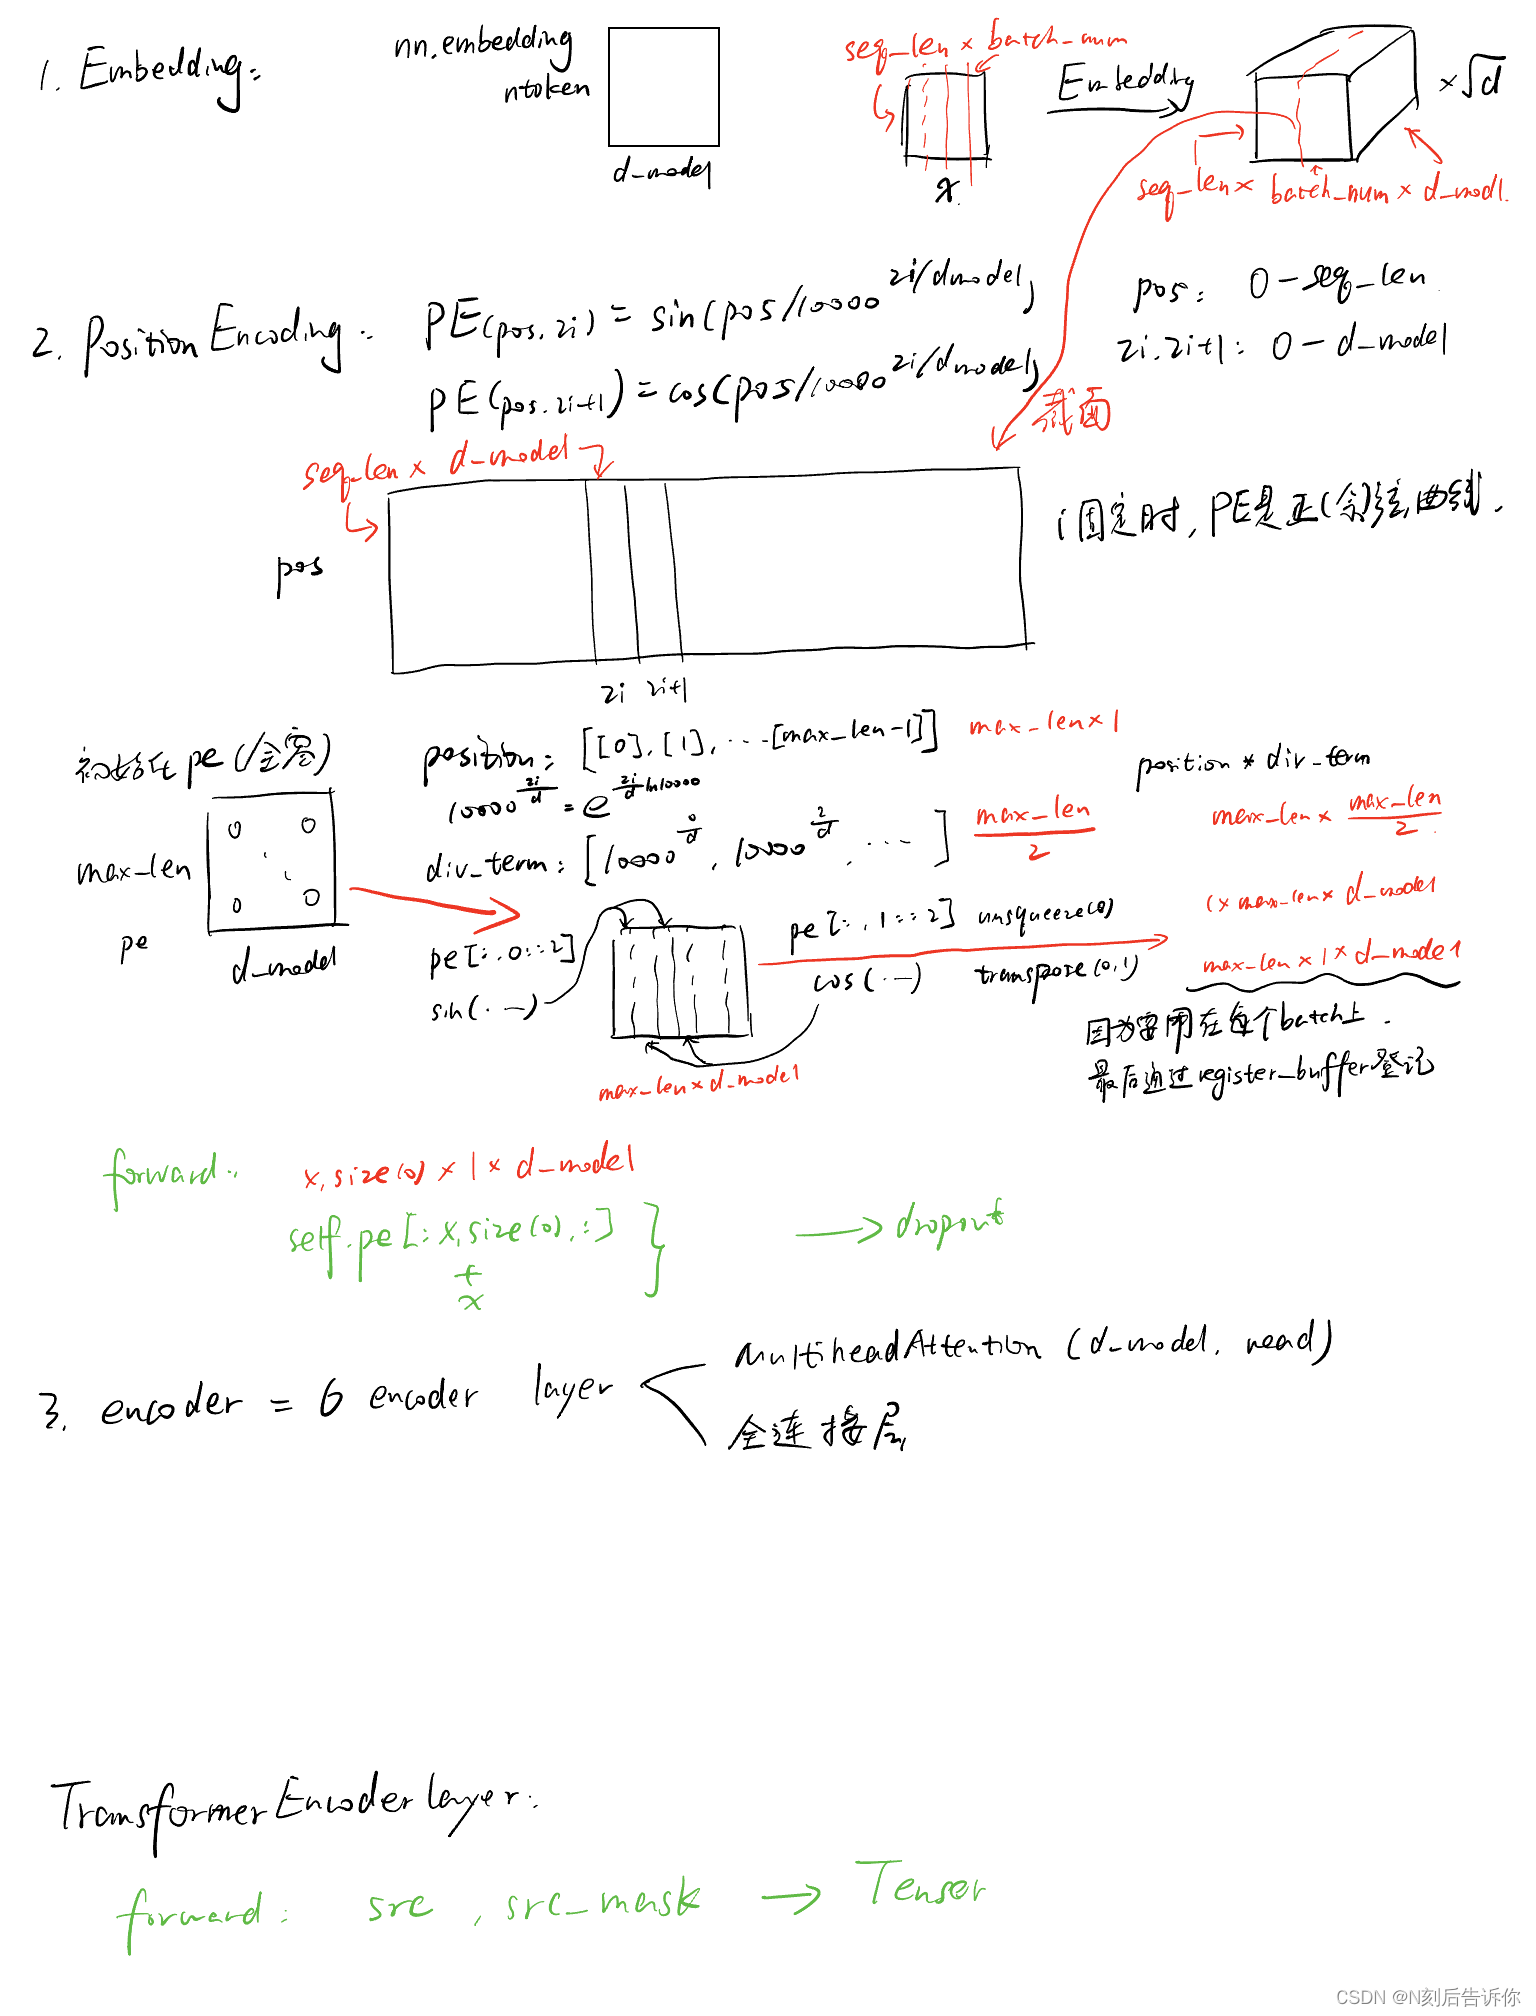 1. Embedding:
nn.embedding
ntoken
d-model
seq-len × batch-num
x
Embedding
×√d
seq-len × batch-num × d-modl.
2. Position Encoding:
PE(pos.2i) = sin(pos/10000^2i/dmodel)
PE(pos.2i+1) = cos(pos/10000^2i/dmodel)
pos: 0-seq-len
2i.2i+1: 0-d-model
截面
seq-len × d-model
pos
2i 2i+1
i固定时, PE是正(余)弦曲线.
初始化pe(/全零)
max-len
pe
d-model
position: [[0],[1],...[max-len-1]] max-len×1
10000^2i/d = e^2i/d ln10000
div-term: [10000^0/d, 10000^2/d, ...] max-len/2
position * div-term
max-len × max-len/2
1×max-len×d-model
max-len×1×d-model
pe[:,0::2]
sin(...)
max-len×d-model
pe[:,1::2] unsqueeze(0)
cos(...) transpose(0,1)
因为要用在每个batch上.
最后通过register-buffer登记
forward:
x.size(0) × 1 × d-model
self.pe[:x.size(0),:]
+
x
→ dropout
3. encoder = 6 encoder layer
MultiheadAttention (d-model, nead)
全连接层
TransformerEncoderlayer:
forward: src, src-mask → Tensor
CSDN @N刻后告诉你